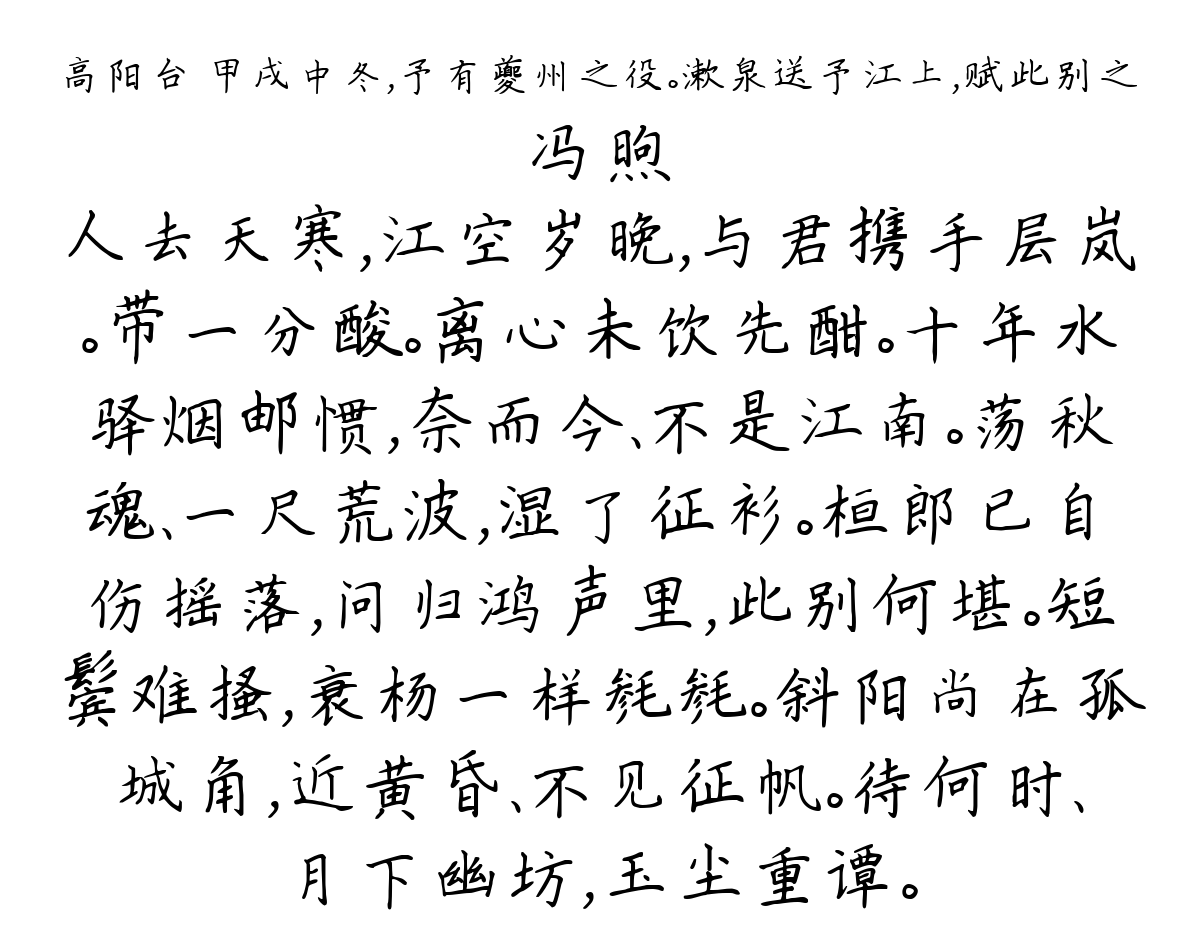 高阳台 甲戌中冬,予有夔州之役。漱泉送予江上,赋此别之
冯煦
人去天寒,江空岁晚,与君携手层岚
。带一分酸。离心未饮先酣。十年水
驿烟邮惯,奈而今、不是江南。荡秋
魂、一尺荒波,湿了征衫。桓郎已自
伤摇落,问归鸿声里,此别何堪。短
鬓难搔,衰杨一样毵毵。斜阳尚在孤
城角,近黄昏、不见征帆。待何时、
月下幽坊,玉尘重谭。